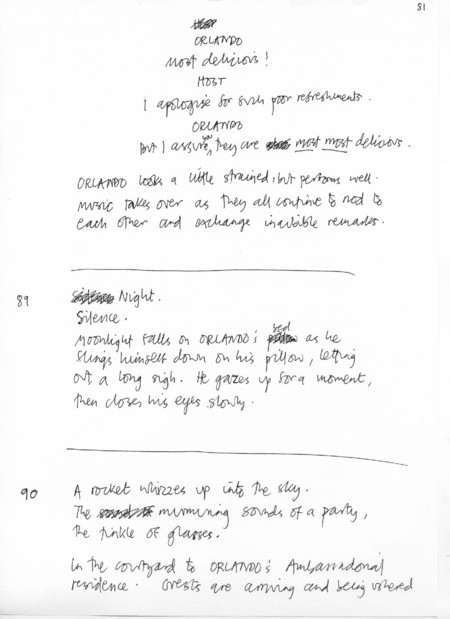 81
ORLANDO
Most delicious!
HOST
I apologise for such poor refreshments.
ORLANDO
But I assure you they are most most delicious.
ORLANDO looks a little strained, but performs well.
Music takes over as they all continue to nod to
each other and exchange inaudible remarks.
89
Night.
Silence.
Moonlight falls on ORLANDO's bed as he
flings himself down on his pillow, letting
out a long sigh. He gazes up for a moment,
then closes his eyes slowly.
90
A rocket whizzes up into the sky.
The murmuring sounds of a party,
the tinkle of glasses.
In the courtyard to ORLANDO's Ambassadorial
residence. Guests are arriving and being ushered